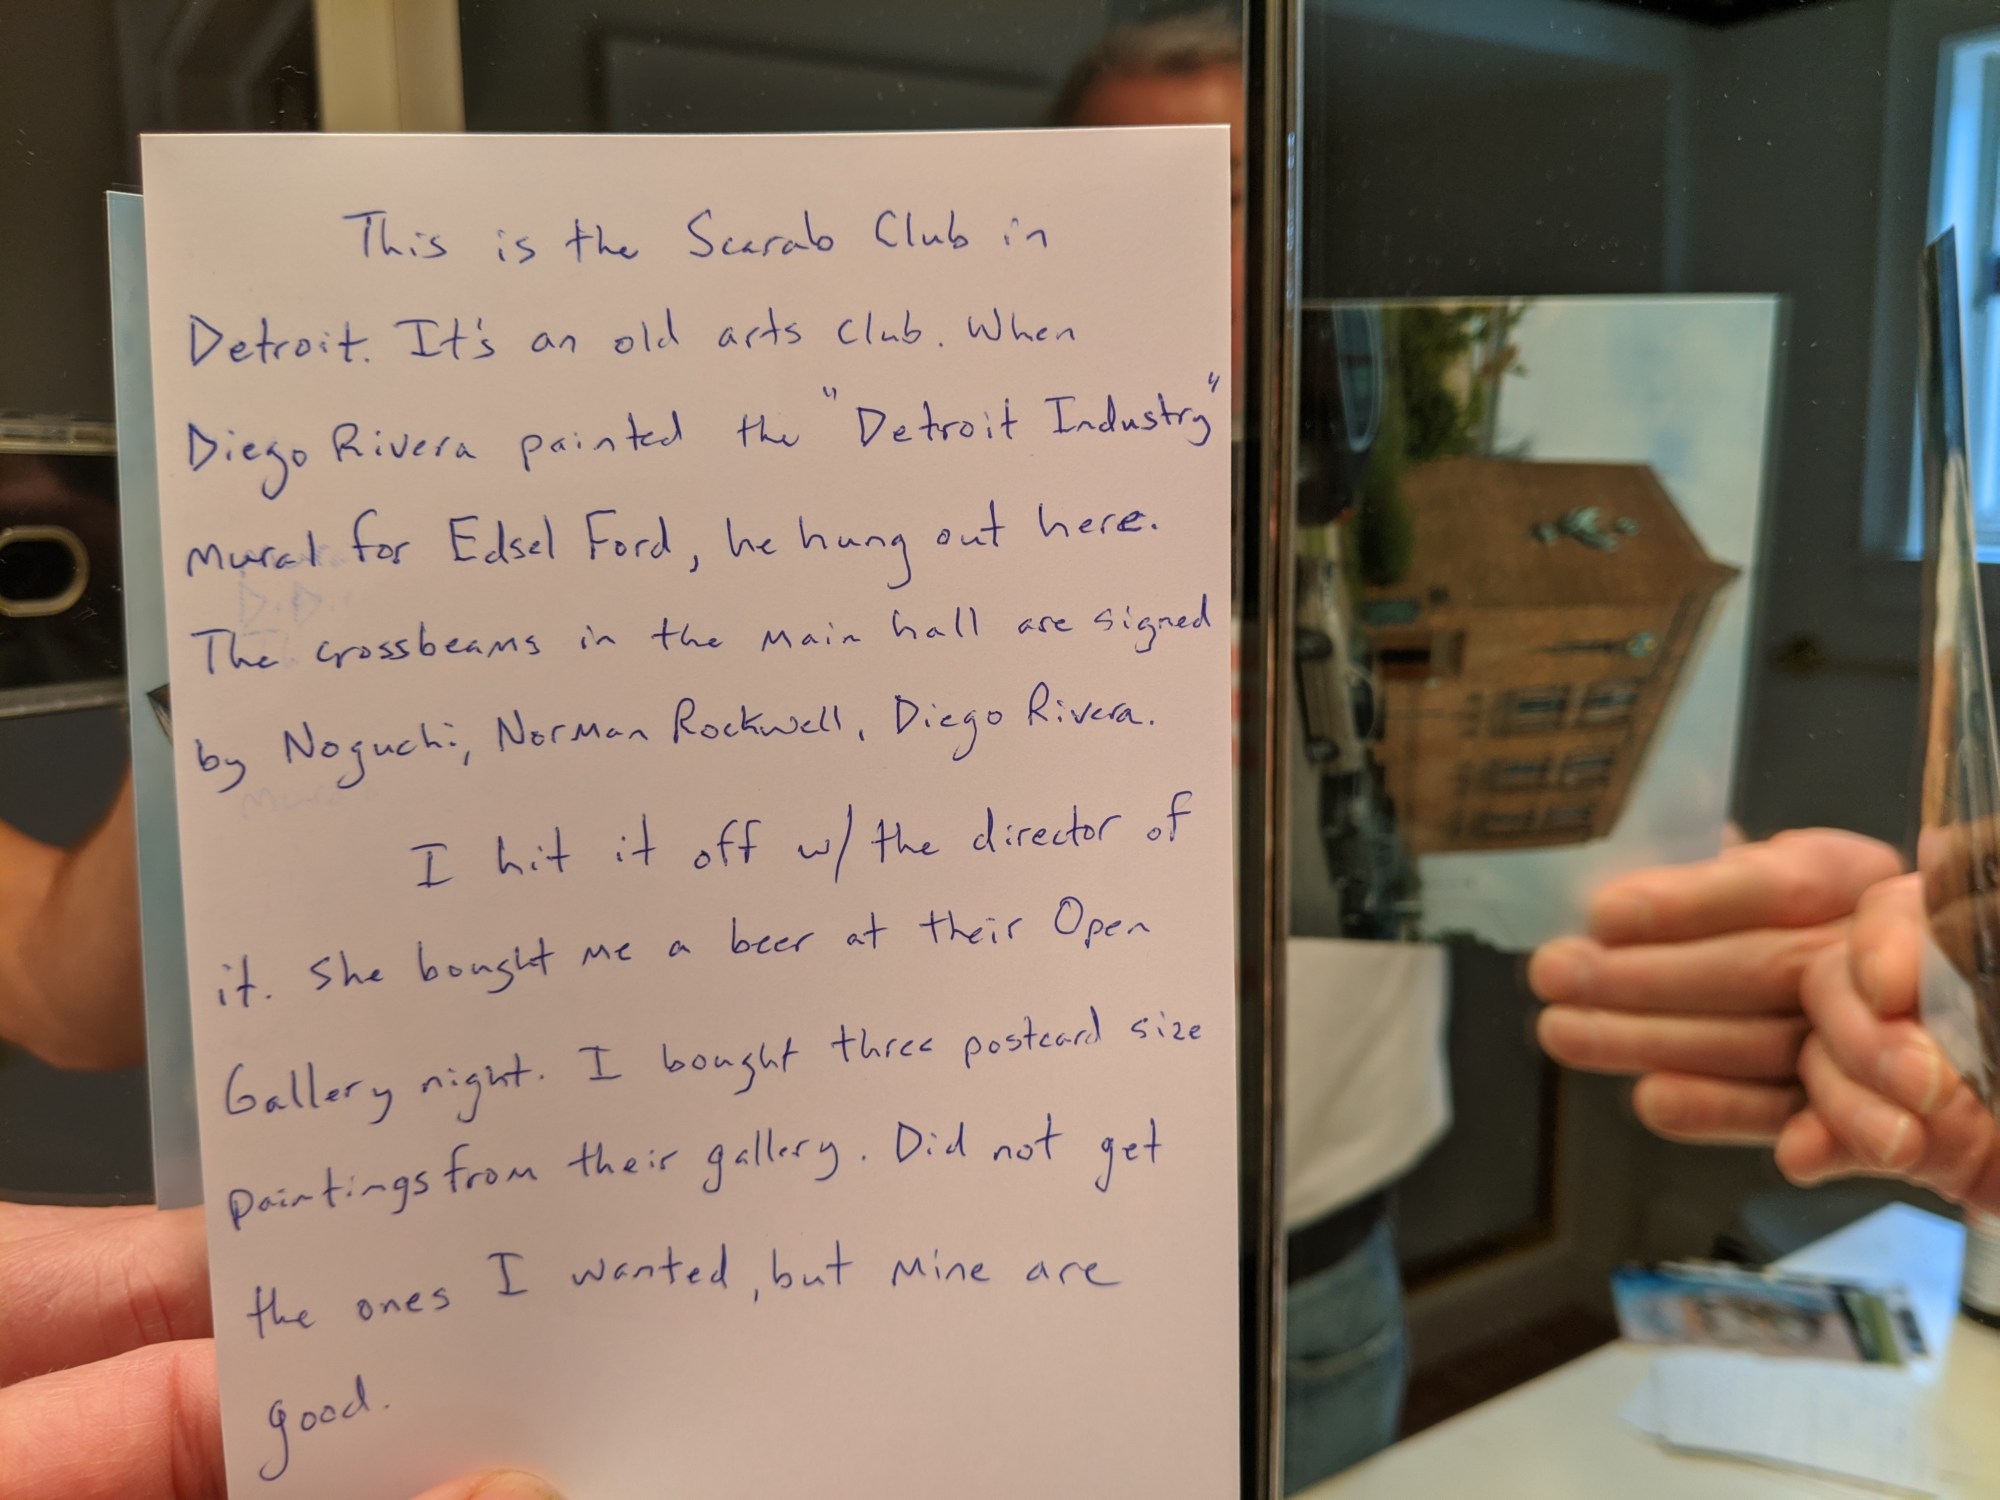 This is the Scarab Club in
Detroit. It's an old arts club. When
Diego Rivera painted the "Detroit Industry"
mural for Edsel Ford, he hung out here.
The crossbeams in the main hall are signed
by Noguchi, Norman Rockwell, Diego Rivera.
I hit it off w/ the director of
it. She bought me a beer at their Open
Gallery night. I bought three postcard size
paintings from their gallery. Did not get
the ones I wanted, but mine are
good.